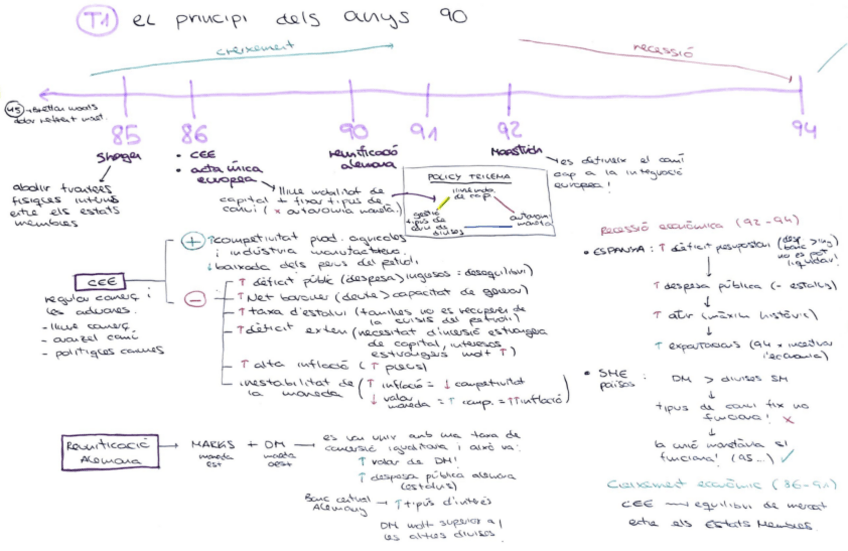 T1 el principi dels anys 90
creixement
recessió
45 → Bretton Woods
85
86
90
91
92
94
Shengen
abolir
físiques
entre els estats
membres
• CEE
• acta única
europea
lliure mobilitat de
capital + fixar tipus de
canvi (x autonomia monetà.)
reunificació
alemana
Maastrich
es defineix el camí
cap a la integració
europea!
POLICY TRILEMA
de cap.
gestió
tipus de
divises
autonom.
monetà
CEE
regular comerç i
les aduanes.
- lliure comerç
- aranzel comú
- polítiques comunes
+ ↑ competivitat prod. agrícoles
i indústria manufacturera
↓ baixada dels preus del petroli
- ↑ dèficit públic (despesa > ingressos = desequilibri)
↑ (deute > capacitat de generar)
↑ taxa d'estalvi (famílies no es recuperen de
la crisis del petroli)
↑ dèficit extern (necessitat d'inversió estrangera
de capital, interesos
estrangers molt ↑)
↑ alta inflació (↑ preus)
inestabilitat de
la moneda
↑ inflació = ↓ competivitat
↓ valor
moneda = ↑ comp. = ↑↑ inflació
Reunificació
Alemana
→ MARKS + DM
moneda
est
moneda
oest
es van unir amb una taxa de
conversió igualitaria i això va:
↑ valor de DM!
↑ despesa pública alemana
(estalvis)
Banc central
Alemany → ↑ tipus d'interès
DM molt superior a
les altres divises
Recessió econòmica (92-94)
• ESPANYA: ↑ dèficit pesupostari
↓
↑ despesa pública (- estalvis)
↓
↑ atur (màxim històric)
↓
↑ exportacions (94
l'economia)
• SME
països : DM > divises SM
↓
tipus de canvi fix no
funciona! x
↓
la unió monetària si
funciona! (95...) ✓
Creixement econòmic (86-91)
CEE → equilibri de mercat
entre els Estats Membres.